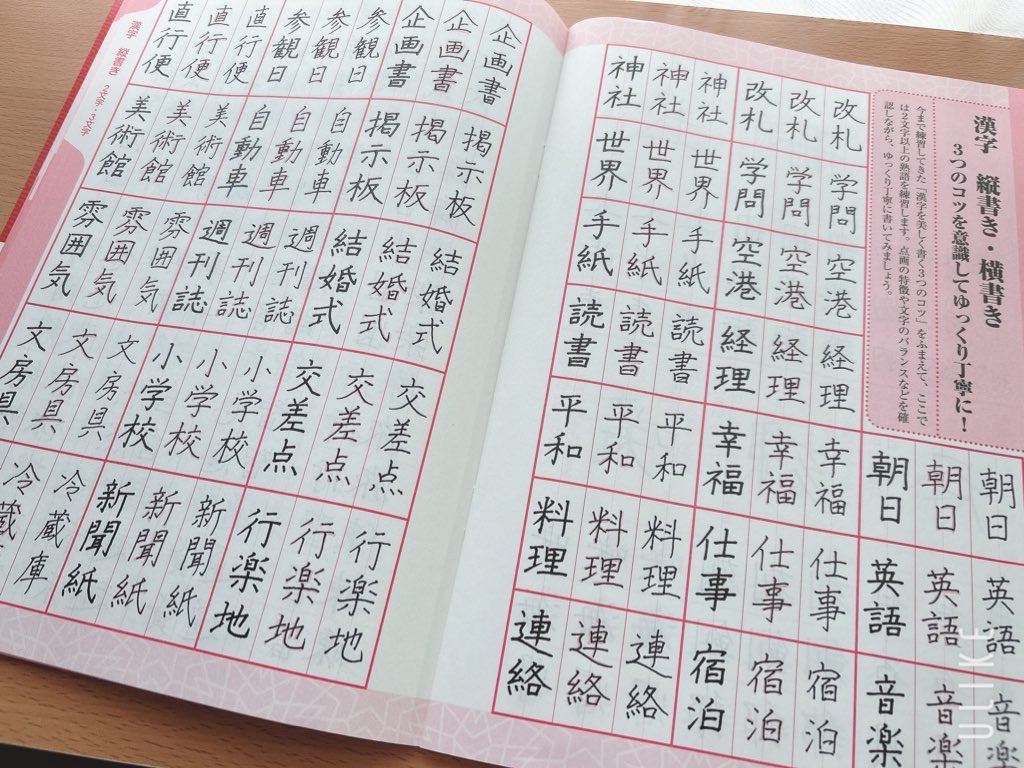 漢字 縦書き・横書き
3つのコツを意識してゆっくり丁寧に！
今まで練習してきた「漢字を美しく書く3つのコツ」をふまえて、ここで
は2文字以上の熟語を練習します。点画の特徴や文字のバランスなどを確
認しながら、ゆっくり丁寧に書いてみましょう。
朝日 英語 音楽
朝日 英語 音楽
朝日 英語 音楽
改札 学問 空港 経理 幸福 仕事 宿泊
改札 学問 空港 経理 幸福 仕事 宿泊
改札 学問 空港 経理 幸福 仕事 宿泊
神社 世界 手紙 読書 平和 料理 連絡
神社 世界 手紙 読書 平和 料理 連絡
神社 世界 手紙 読書 平和 料理 連絡
企画書 掲示板 結婚式 交差点 行楽地
企画書 掲示板 結婚式 交差点 行楽地
企画書 掲示板 結婚式 交差点 行楽地
参観日 自動車 週刊誌 小学校 新聞紙
参観日 自動車 週刊誌 小学校 新聞紙
参観日 自動車 週刊誌 小学校 新聞紙
直行便 美術館 雰囲気 文房具 冷蔵庫
直行便 美術館 雰囲気 文房具 冷蔵
直行便 美術館 雰囲気 文房具
漢字 縦書き 2文字・3文字
ULIKE